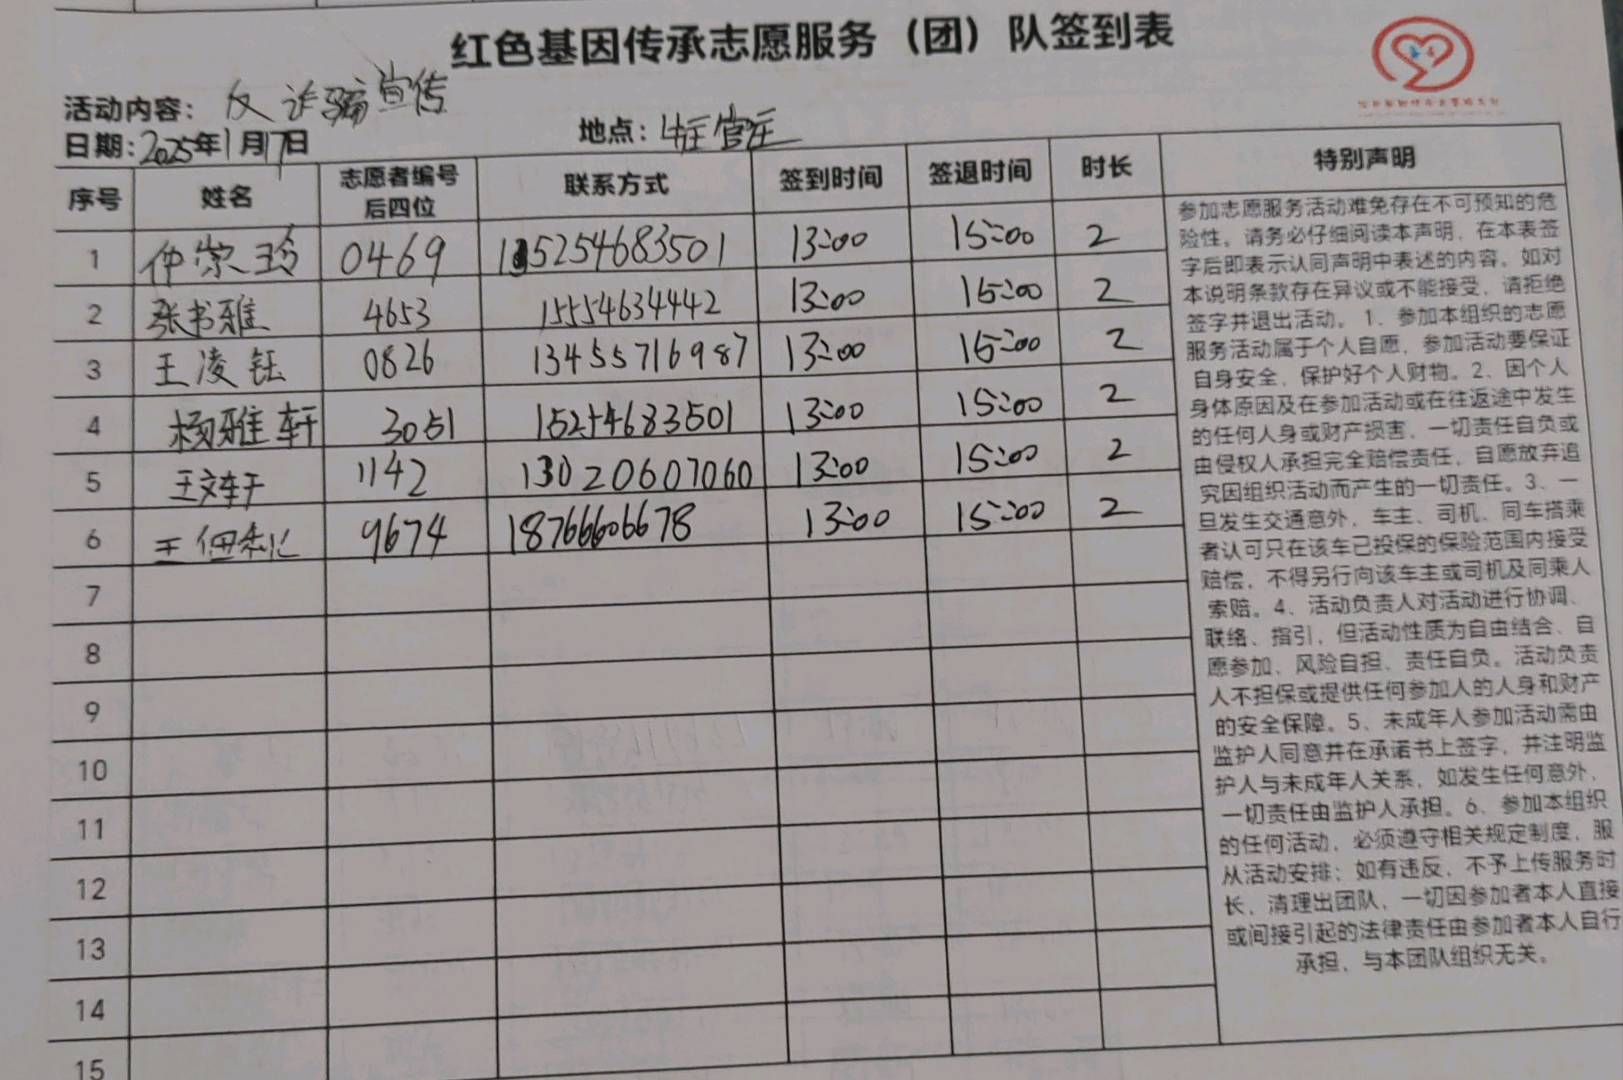 红色基因传承志愿服务（团）队签到表
活动内容：反诈骗宣传
日期：2025年1月17日 地点：
序号 姓名 志愿者编号后四位 联系方式 签到时间 签退时间 时长 特别声明
1 仲崇玲 0469 15254683501 13:00 15:00 2
2 张书雅 4653 15554634442 13:00 15:00 2
3 王凌钰 0826 13455716987 13:00 15:00 2
4 杨雅轩 3051 15254683501 13:00 15:00 2
5 王文轩 1142 13020607060 13:00 15:00 2
6 王 9674 18766606678 13:00 15:00 2
7
8
9
10
11
12
13
14
15
参加志愿服务活动难免存在不可预知的危
险性。请务必仔细阅读本声明，在本表签
字后即表示认同声明中表述的内容。如对
本说明条款存在异议或不能接受，请拒绝
签字并退出活动。1、参加本组织的志愿
服务活动属于个人自愿，参加活动要保证
自身安全，保护好个人财物。2、因个人
身体原因及在参加活动或在往返途中发生
的任何人身或财产损害，一切责任自负或
由侵权人承担完全赔偿责任，自愿放弃追
究因组织活动而产生的一切责任。3、一
旦发生交通意外，车主、司机、同车搭乘
者认可只在该车已投保的保险范围内接受
赔偿，不得另行向该车主或司机及同乘人
索赔。4、活动负责人对活动进行协调、
联络、指引，但活动性质为自由结合、自
愿参加、风险自担、责任自负。活动负责
人不担保或提供任何参加人的人身和财产
的安全保障。5、未成年人参加活动需由
监护人同意并在承诺书上签字，并注明监
护人与未成年人关系，如发生任何意外，
一切责任由监护人承担。6、参加本组织
的任何活动，必须遵守相关规定制度，服
从活动安排；如有违反，不予上传服务时
长，清理出团队，一切因参加者本人直接
或间接引起的法律责任由参加者本人自行
承担，与本团队组织无关。